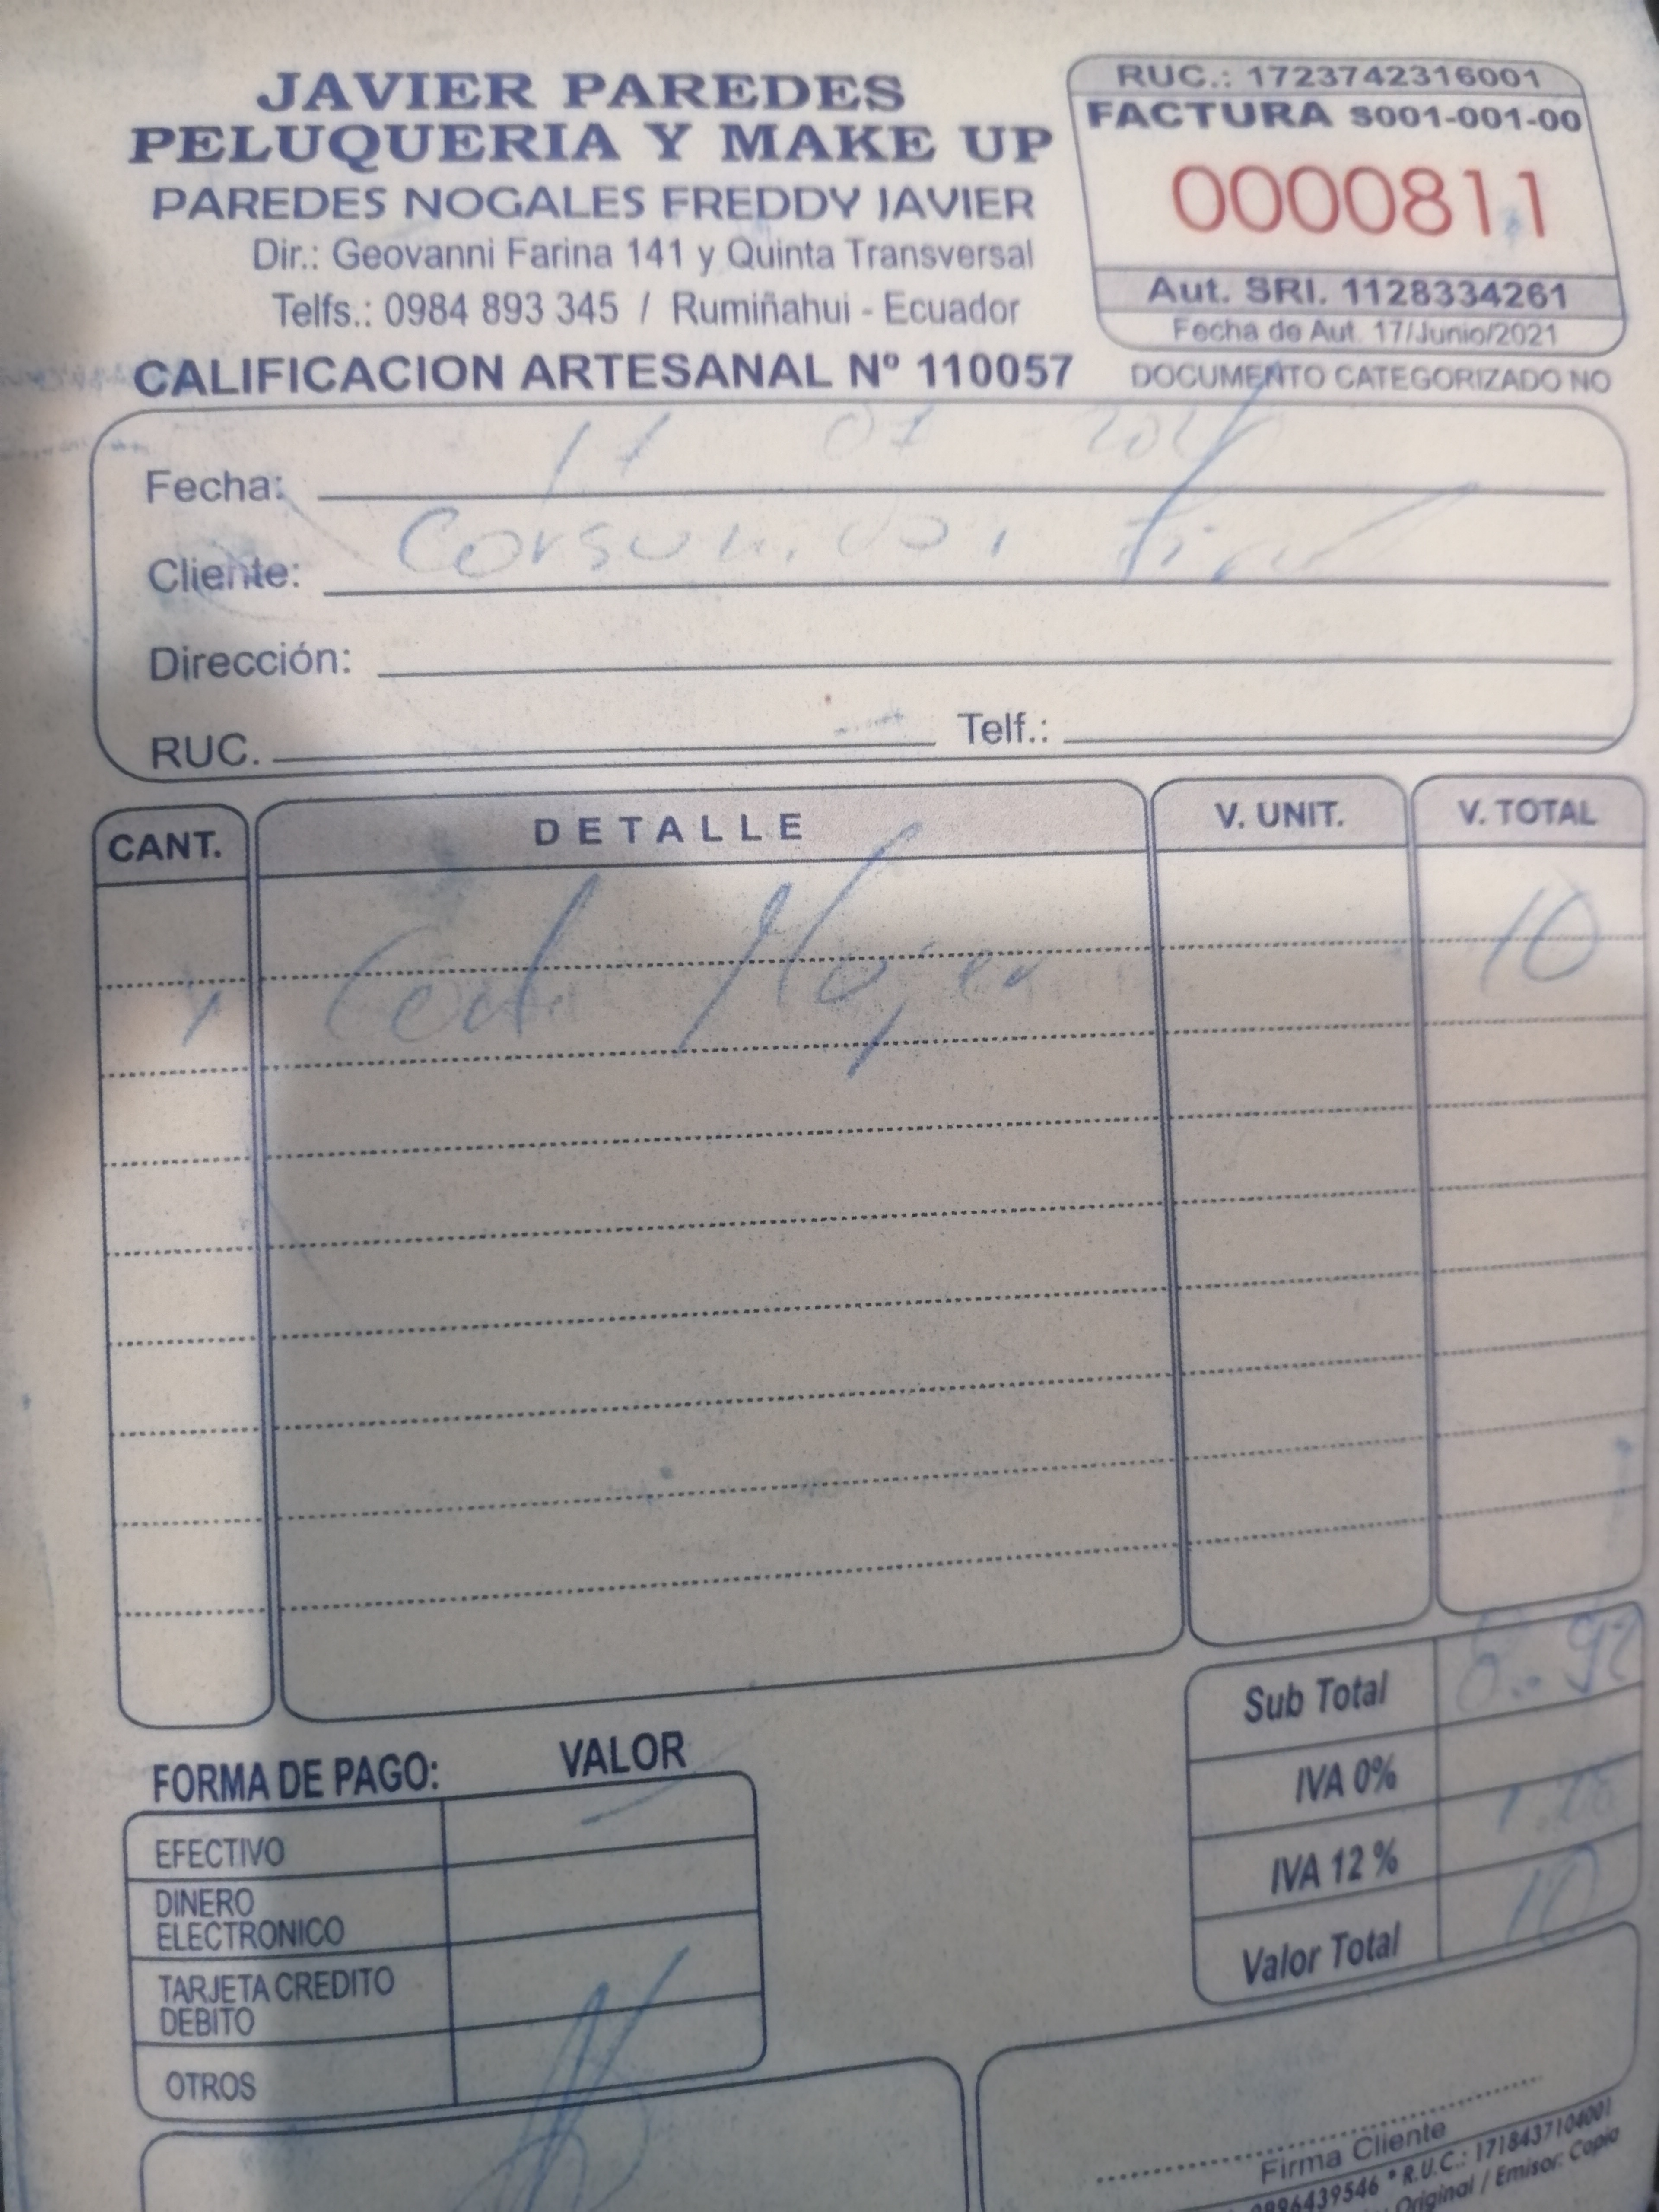 JAVIER PAREDES
PELUQUERIA Y MAKE UP
PAREDES NOGALES FREDDY JAVIER
Dir.: Geovanni Farina 141 y Quinta Transversal
Telfs.: 0984 893 345 / Rumiñahui - Ecuador
CALIFICACION ARTESANAL Nº 110057
RUC.: 1723742316001
FACTURA S001-001-00
0000811
Aut. SRI. 1128334261
Fecha de Aut. 17/Junio/2021
DOCUMENTO CATEGORIZADO NO
Fecha: 11
Cliente: Consumidor Final
Dirección:
RUC. Telf.:
CANT. DETALLE V. UNIT. V. TOTAL
1 Corte Mujer 10
Sub Total
IVA 0%
IVA 12 %
Valor Total 10
FORMA DE PAGO: VALOR
EFECTIVO
DINERO
ELECTRONICO
TARJETA CREDITO
DEBITO
OTROS
Firma Cliente
R.U.C.: 1718437104001
Original / Emisor: Copia